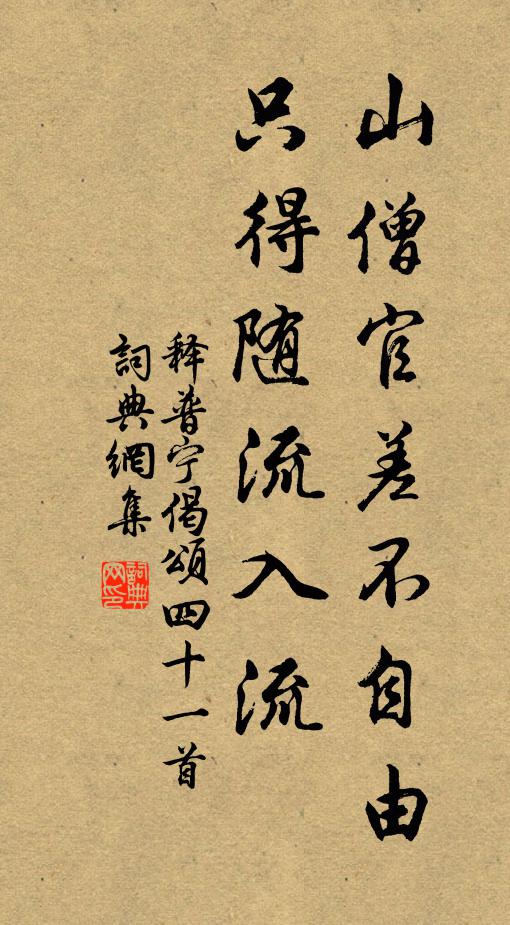 山僧官差不自由
只得随流入流
释普宁偈頌四十一首
詞典網集
詞典网印